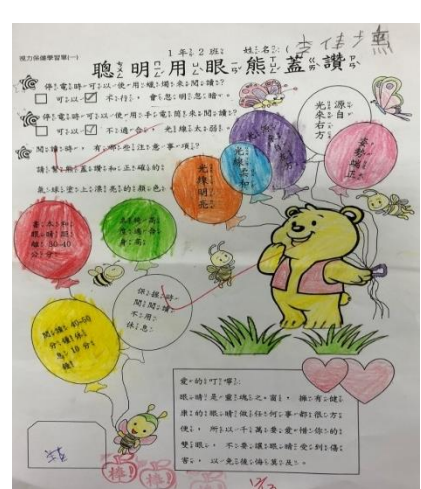 視力保健學習單(一)
1年2班 姓名:(李
聰明用眼熊蓋讚
停電時可以使用蠟燭來閱讀?
可以 不行,會
停電時可以使用手電筒來閱讀?
可以 不適合,光線太弱
閱讀時,有哪些注意事項?
請幫熊蓋讚和正確的
氣球塗上漂亮的顏色
光源
來自
右方
姿勢端正
光線柔和
光線明亮
書本和
眼睛距
離 30-40
公分
桌椅高
度適合
身高
保健時
間閱讀
不用
休息
閱讀 40-50
分鐘休
息 10 分
鐘
愛的叮嚀:
眼睛是靈魂之窗,擁有健
康的眼睛做任何事都很方
便,所以千萬要愛惜你的
雙眼,不要讓眼睛受到傷
害,以免後悔莫及。
棒! 棒!